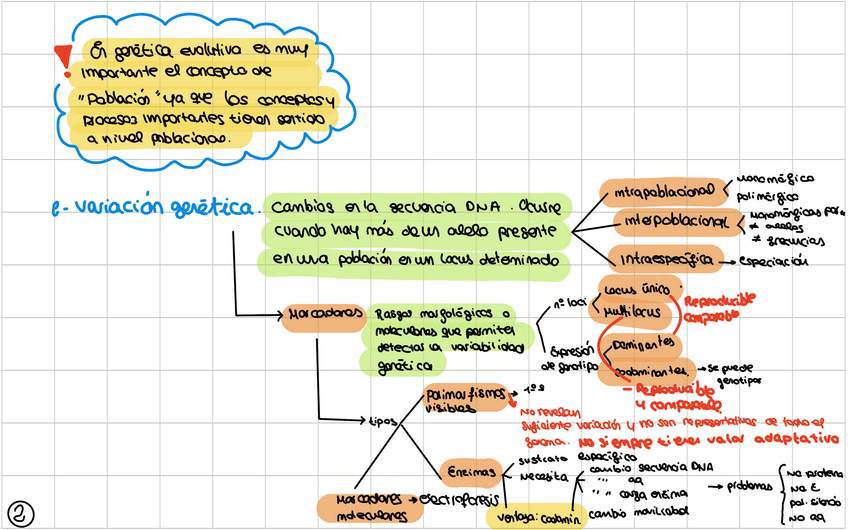 En genética evolutiva es muy
importante el concepto de
"Población" ya que los conceptos y
procesos importantes tienen sentido
a nivel poblacional.
variación genética.
Cambios en la secuencia DNA. Ocurre
cuando hay más de un alelo presente
en una población en un locus determinado
intrapoblacional
monomórfico
polimórfico
interpoblacional
monomórficas para
≠ alelos
≠ frecuencias
intraespecífica → especiación
Marcadores
Rasgos morfológicos o
moleculares que permiten
detectar la variabilidad
genética
nº loci
Locus único
Multilocus
Reproducible
comparable
Expresión
de genotipo
Dominantes
codominantes. → se puede
genotipar
- Reproducible
y comparable
tipos
polimorfismos → 1ºs
visibles
No revelan
suficiente variación y no son representativas de todo el
genoma. No siempre tienen valor adaptativo
Enzimas
sustrato específico
necesita
cambio secuencia DNA
" aa
" " carga enzima
cambio movilidad
→ problemas
no proteína
no E
pol. silencio
no aa
ventaja: codomin
Marcadores → electroforesis
moleculares
2